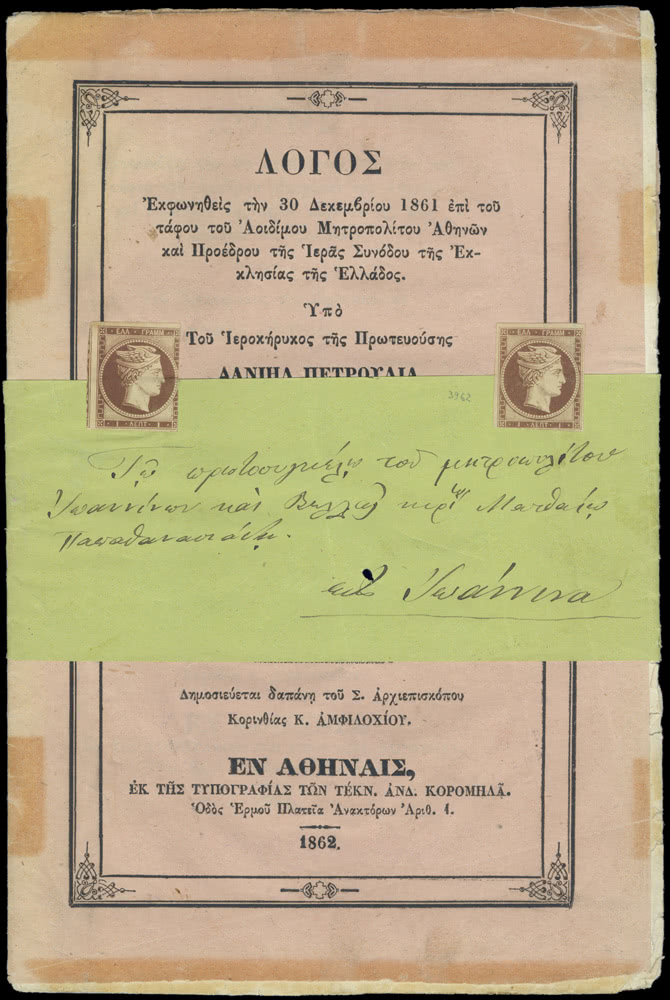 ΛΟΓΟΣ
Ἐκφωνηθεὶς τὴν 30 Δεκεμβρίου 1861 ἐπὶ τοῦ
τάφου τοῦ Ἀοιδίμου Μητροπολίτου Ἀθηνῶν
καὶ Προέδρου τῆς Ἱερᾶς Συνόδου τῆς Ἐκ-
κλησίας τῆς Ἑλλάδος.
Ὑπὸ
Τοῦ Ἱεροκήρυκος τῆς Πρωτευούσης
ΔΑΝΙΗΛ ΠΕΤΡΟΥΛΙΑ
ΕΛΛ ΓΡΑΜΜ
1 ΛΕΠΤ 1
ΕΛΛ ΓΡΑΜΜ
1 ΛΕΠΤ 1
3962
Τῷ πρωτοσυγκέλῳ τοῦ μητροπολίτου
Ἰωαννίνων καὶ Ματθαίῳ
Παπαθανασιάδῃ.
εἰς Ἰωάννινα
Δημοσιεύεται δαπάνῃ τοῦ Σ. Ἀρχιεπισκόπου
Κορινθίας Κ. ΑΜΦΙΛΟΧΙΟΥ.
ΕΝ ΑΘΗΝΑΙΣ,
ἘΚ ΤΗΣ ΤΥΠΟΓΡΑΦΙΑΣ ΤΩΝ ΤΕΚΝ. ΑΝΔ. ΚΟΡΟΜΗΛΑ.
Ὁδὸς Ἑρμοῦ Πλατεῖα Ἀνακτόρων Ἀριθ. 1.
1862.